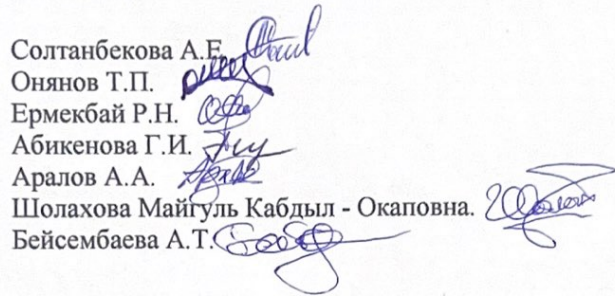 Солтанбекова А.Е.
Онянов Т.П.
Ермекбай Р.Н.
Абикенова Г.И.
Аралов А.А.
Шолахова Майгуль Кабдыл - Окаповна.
Бейсембаева А.Т.